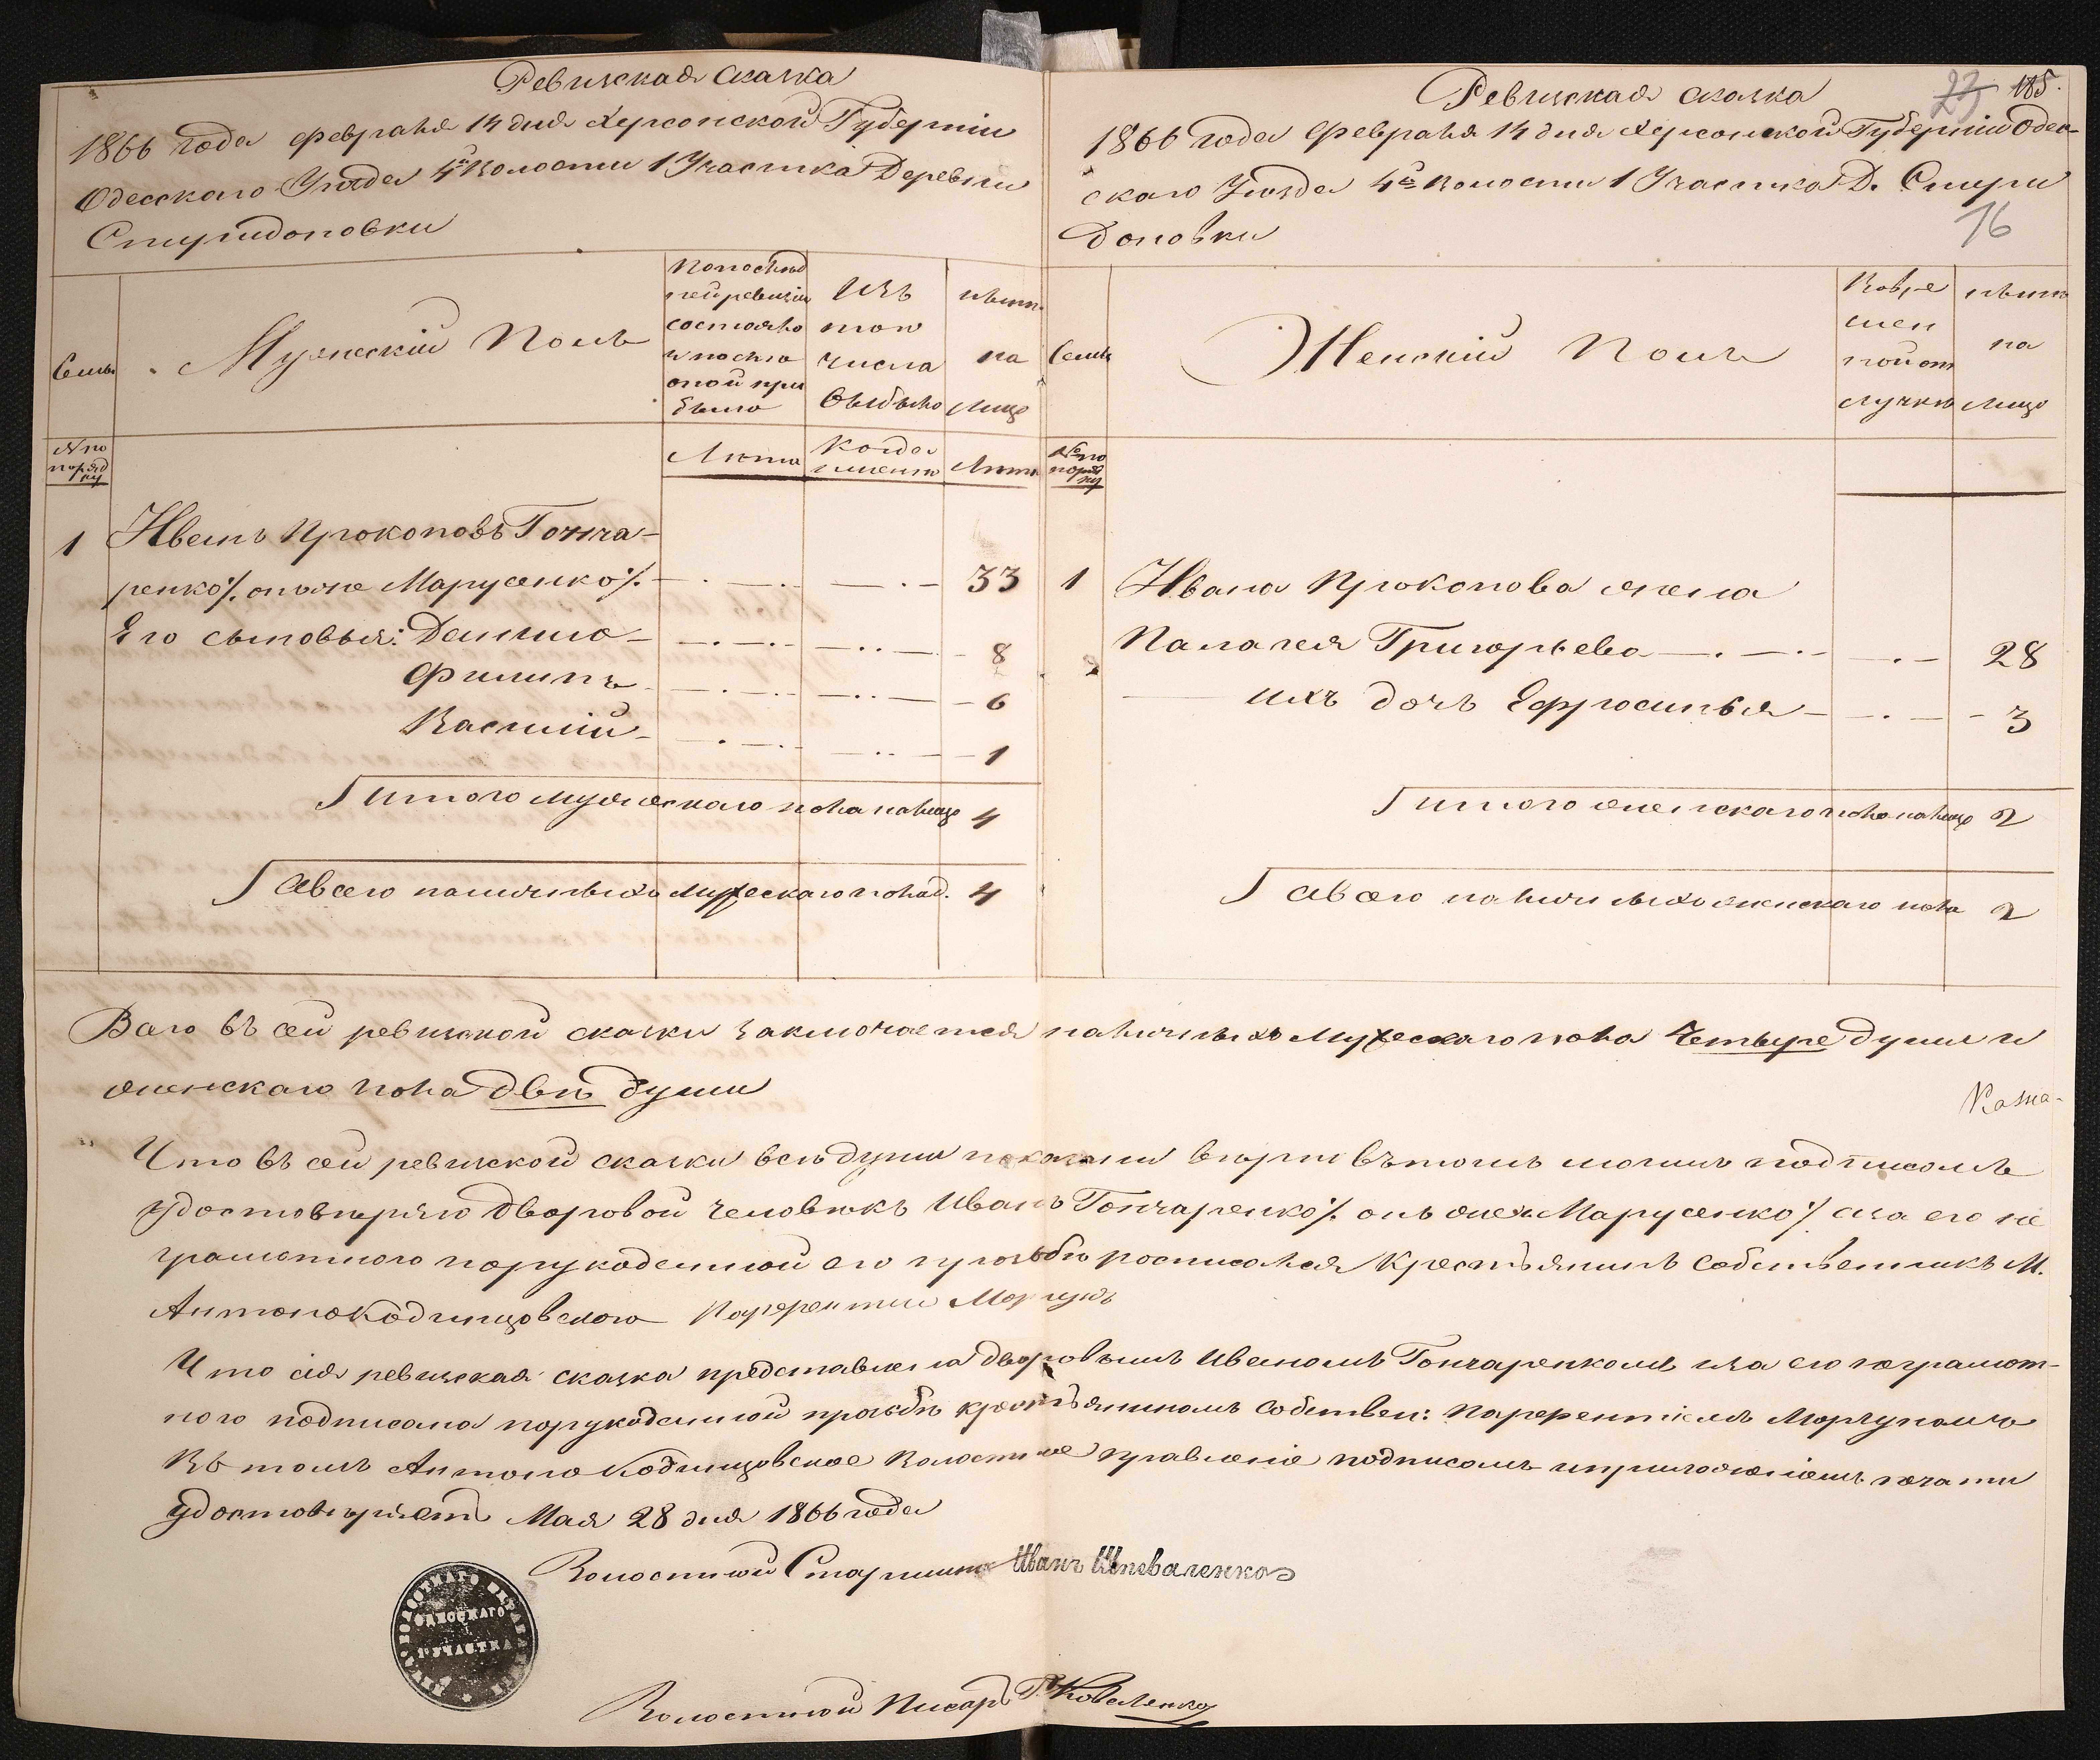 Ревизская сказка
1866 года февраля 14 дня Херсонской Губерніи
Одесского Уѣзда 4й Волости 1 Участка Деревни
Спиридоновки
Семьи
Мужескій Полъ
По послѣд
ней ревизіи
состояло
и после
оной при
было
Изъ
того
числа
выбыло
нынѣ
на
лицо
№ по
поряд
ку
Лѣта
Когда
именно
Лѣта
1 Иванъ Прокоповъ Гонча-
ренко ٪ онъ же Марусенко ٪ 33
Его сыновья: Данило 8
Филипъ 6
Василій 1
Итого мужескаго пола на лицо 4
А всего наличныхъ мужескаго пола д. 4
Ревизская сказка
23 185.
1866 года Февраля 14 дня Херсонской Губерніи Одес-
скаго Уѣзда 4й волости 1 Участка Д. Спири
доновки
16
Семьи
Женскій Полъ
Во вре
мен
ной от
лучкѣ
нынѣ
на
лицо
№ по
поряд
ку
1 Ивана Прокопова жена
Палагея Григорьева 28
ихъ дочь Ефросинья 3
Итого женскаго пола на лицо 2
А всего наличныхъ женскаго пола 2
Всего въ сей ревизской сказки заключается наличныхъ мужескаго пола четыре души и
женскаго пола двѣ души
Казна-
Что въ сей ревизской сказки всѣ души показаны вѣрно въ томъ моимъ подписомъ
удостовѣряю Дворовой человѣкъ Иванъ Гончаренко ٪ онъ же Марусенко ٪ а за его не
грамотного по рукоданной его прозьбѣ росписался Крестьянинъ Собственникъ М.
Антоно Кодинцовского Парфентий Моргунъ
Что сія ревизская сказка представлена дворовымъ Иваномъ Гончаренкомъ и за его неграмот-
ного подписана по рукоданной прозьбѣ крестьяниномъ собствен: Парфентіемъ Моргуномъ
Въ томъ Антоно Кодинцовское Волостное правленіе подписомъ и приложеніемъ печати
удостовѣряетъ Мая 28 дня 1866 года
Волостной Старшина Иванъ Шпеваленко
ОДЕССКАГО
1 УЧАСТКА
Волостной Писарь Г. Коваленко